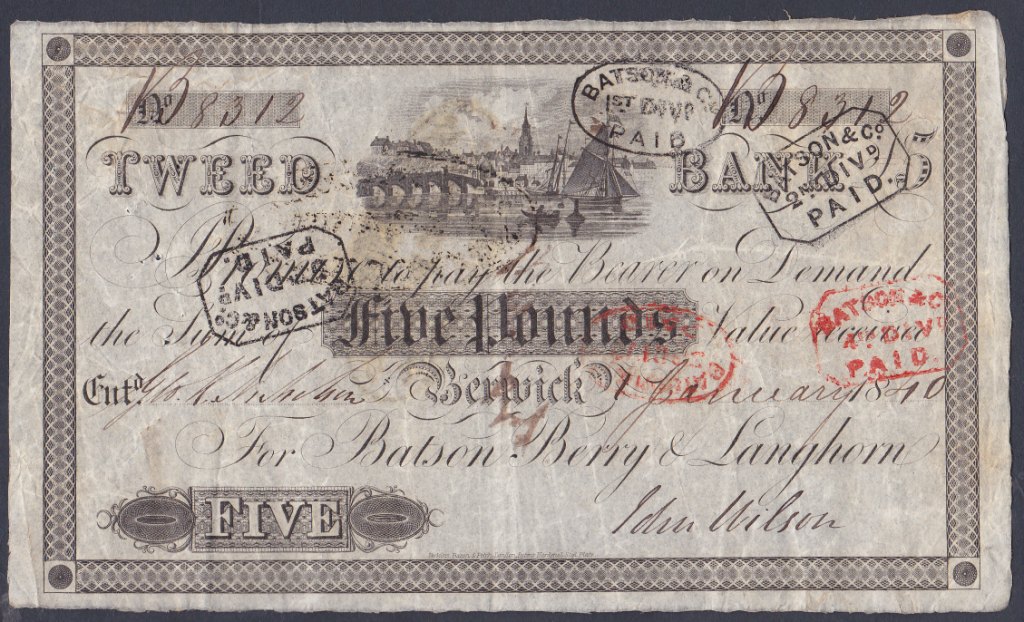 BATSON & Co
1ST DIVD
PAID
No 8312
No 8312
TWEED BANK
BATSON & Co
2ND DIVD
PAID.
I Promise to pay the Bearer on Demand
BATSON & Co
DIVD
PAID.
the Sum of Five Pounds. Value received
BATSON & Co
4TH DIVD
PAID.
Entd. Berwick 1 January 1840
For Batson Berry & Langhorn
FIVE
John Wilson
Perkins, Bacon & Petch, London, Patent Hardened Steel Plate.